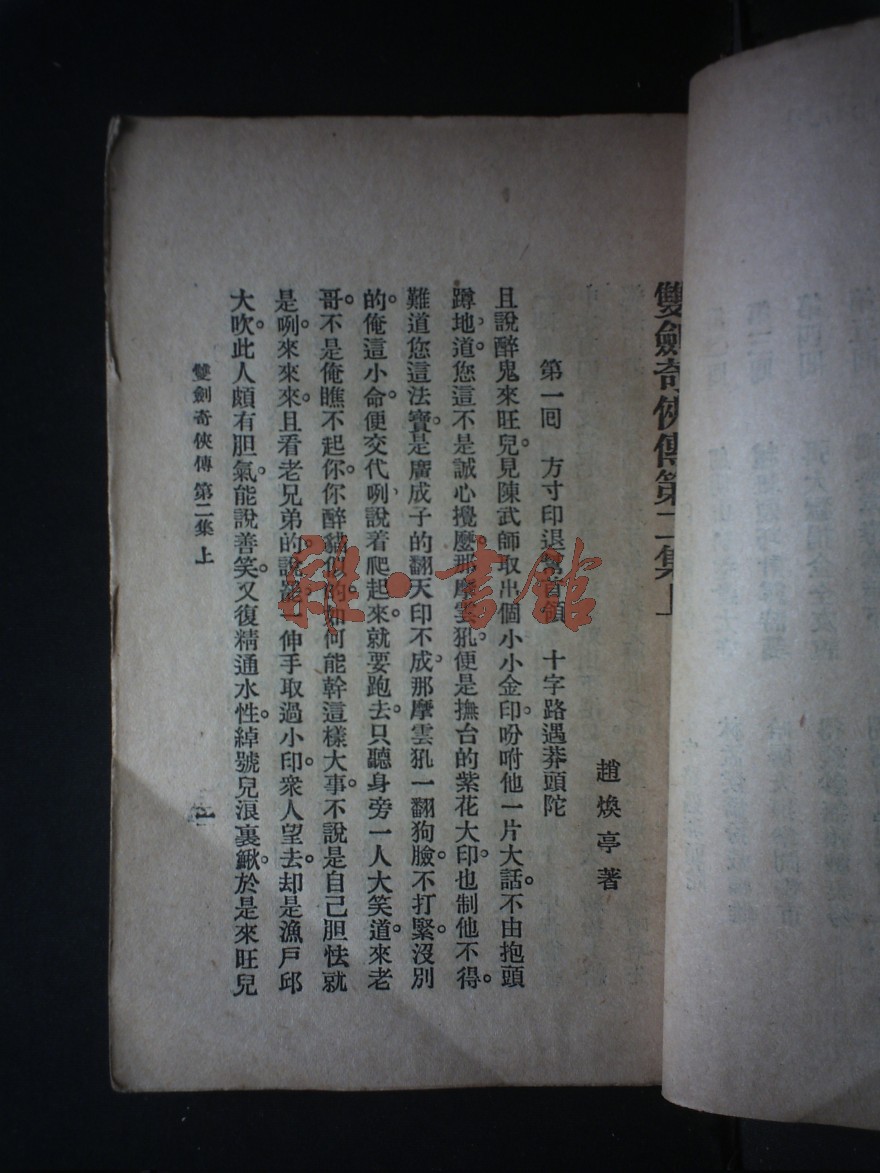 雙劍奇俠傳第二集上
趙煥亭著
第一回 方寸印退 首領 十字路遇莽頭陀
且說醉鬼來旺兒。見陳武師取出個小小金印。吩咐他一片大話。不由抱頭
蹲地道。您這不是誠心攪麽。那摩雲犼。便是撫台的紫花大印。也制他不得。
難道您這法寶。是廣成子的翻天印不成。那摩雲犼一翻狗臉。不打緊。沒別
的。俺這小命。便交代咧。說着爬起來。就要跑去。只聽身旁一人大笑道。來老
哥。不是俺瞧不起你。你醉貓似的。如何能幹這樣大事。不說是自己胆怯就
是咧。來來來。且看老兄弟的。說罷一伸手取過小印。衆人望去。却是漁戶邱
大吹。此人頗有胆氣。能說善笑。又復精通水性。綽號兒浪裏鰍。於是來旺兒
雙劍奇俠傳 第二集 上
一
雜·書館